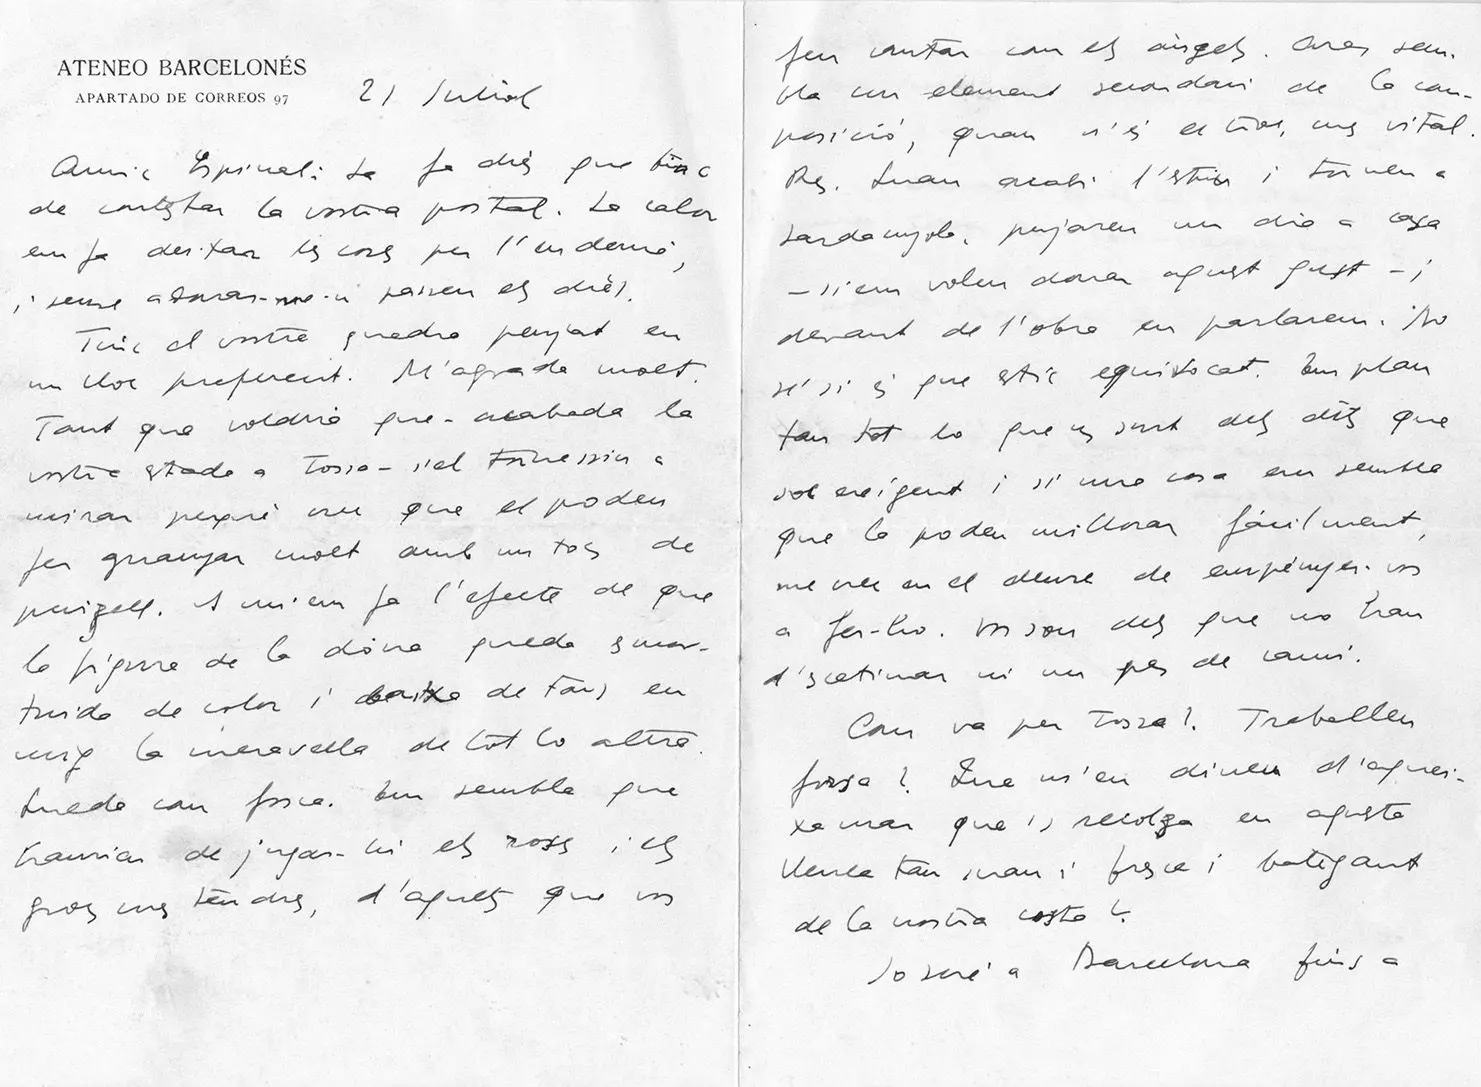 ATENEO BARCELONÉS
APARTADO DE CORREOS 97
21 Juliol
Amic Espinal: Ja fa dies que tinc
de contestar la vostra postal. La calor
em fa deixar les coses per l'endemà,
i sense adonar-me'n passen els dies.
Tinc el vostre quadro penjat en
un lloc preferent. M'agrada molt.
Tant que voldria que - acabada la
vostra estada a Tossa - s'el tornessiu a
mirar perquè crec que el podeu
fer guanyar molt amb un toc de
pinzell. A mi em fa l'efecte de que
la figura de la dona queda esmor-
tuida de color i baixa de tons en
mig la meravella de tot lo altre.
Queda com fosca. Em sembla que
haurian de jugar-hi els roses i els
grocs mes tendres, d'aquets que vos
feu cantar com els àngels. Ara sem-
bla un element secondari de la com-
posició, quan n'és el troç mes vital.
Res. Quan acabi l'estiu i torneu a
Sardanyola, pujareu un dia a casa
- si'em voleu donar aquest gust - i
devant de l'obra en parlarem. No
sé si és que estic equivocat. Em plau
tan tot lo que es surt dels dits que
soc exigent i si una cosa em sembla
que la podeu millorar fàcilment,
me veu en el deure de empényer-vos
a fer-ho. Vos sou dels que no han
d'escatimar ni un pas de camí.
Com va per Tossa?. Treballeu
força? Que m'en dieu d'aquei-
xa mar que es recolza en aquesta
llenca tan suau i fresca i bategant
de la nostra costa?.
Jo seré a Barcelona fins a